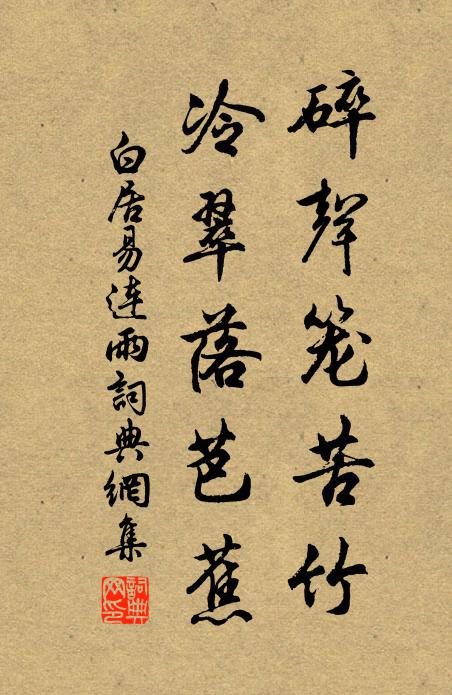 碎聲笼苦竹
冷翠落芭蕉
白居易連雨詞典網集
詞典网印